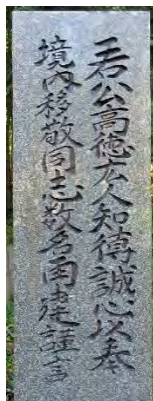 王君公高徳玄人知得誠心以奉
境内移敬同志数名再建謹言